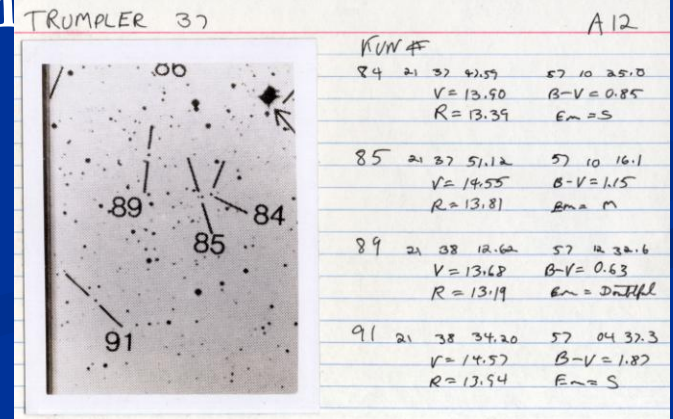 TRUMPLER 37
A12
KUN #
84 21 37 47.59 57 10 25.0
V = 13.90 B-V = 0.85
R = 13.39 Em = S
85 21 37 51.12 57 10 16.1
V = 14.55 B-V = 1.15
R = 13.81 Em = M
89 21 38 12.62 57 12 32.6
V = 13.68 B-V = 0.63
R = 13.19 Em = Doubtful
91 21 38 34.20 57 04 37.3
V = 14.57 B-V = 1.87
R = 13.94 Em = S
86
89
84
85
91